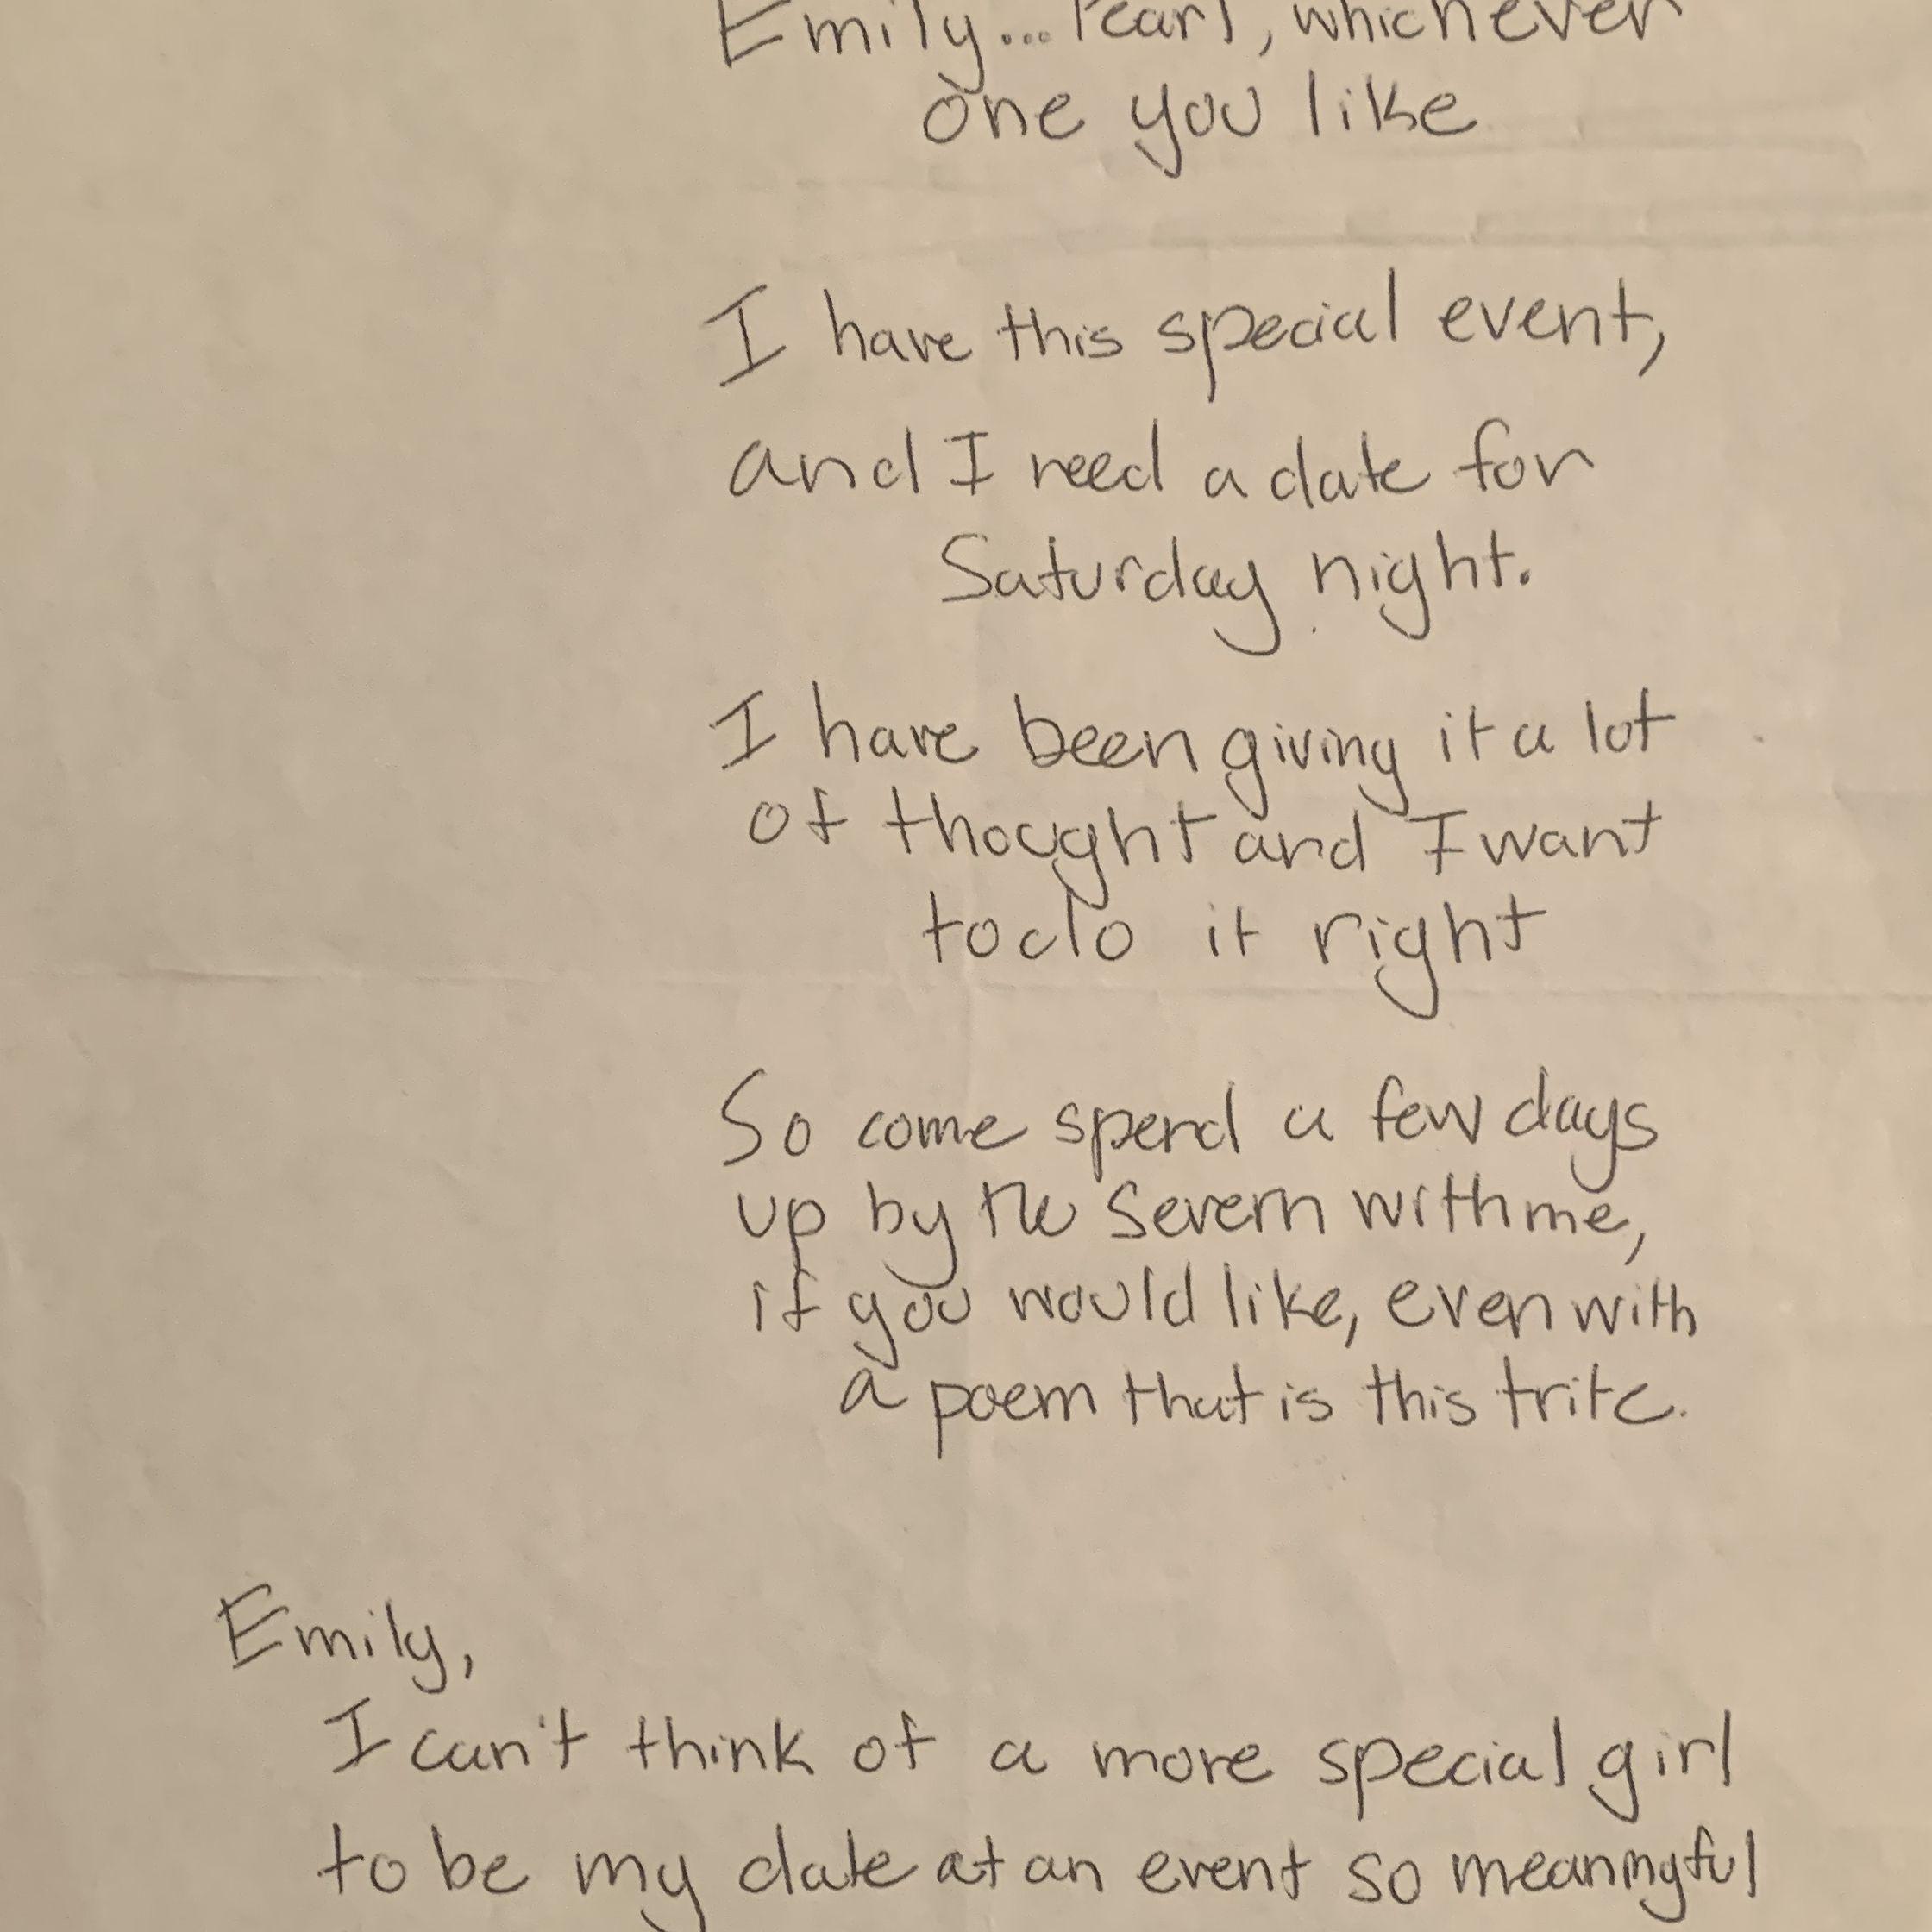 Emily... Pearl, whichever
one you like
I have this special event,
and I need a date for
Saturday night.
I have been giving it a lot
of thought and I want
to do it right
So come spend a few days
up by the Severn with me,
if you would like, even with
a poem that is this trite.
Emily,
I can't think of a more special girl
to be my date at an event so meaningful